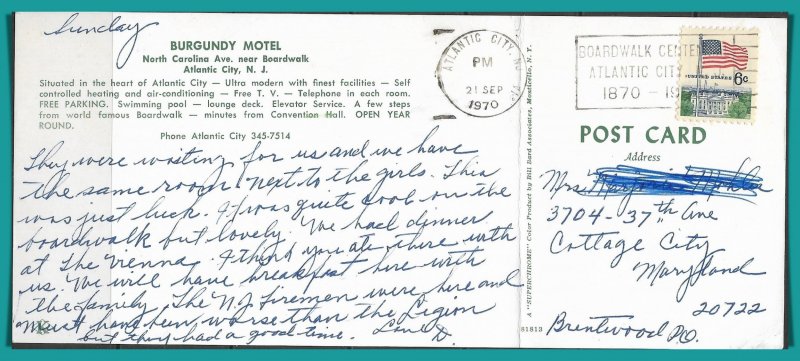 Sunday
BURGUNDY MOTEL
North Carolina Ave. near Boardwalk
Atlantic City, N. J.
Situated in the heart of Atlantic City — Ultra modern with finest facilities — Self
controlled heating and air-conditioning — Free T. V. — Telephone in each room.
FREE PARKING. Swimming pool — lounge deck. Elevator Service. A few steps
from world famous Boardwalk — minutes from Convention Hall. OPEN YEAR
ROUND.
Phone Atlantic City 345-7514
They were waiting for us and we have
the same room next to the girls. This
was just luck. It was quite cool on the
boardwalk but lovely. We had dinner
at The Vienna. I think you ate there with
us. We will have breakfast here with
the family. The N.J. Firemen were here and
must have been worse than the Legion
but they had a good time. Love D.
A "SUPERCHROME" Color Product by Bill Bard Associates, Monticello, N. Y.
81813
ATLANTIC CITY, N.J.
PM
21 SEP
1970
BOARDWALK CENTEN
ATLANTIC CITY
1870 - 19
UNITED STATES
6c
POST CARD
Address
Mrs.
3704-37th Ave
Cottage City
Maryland
20722
Brentwood P.O.